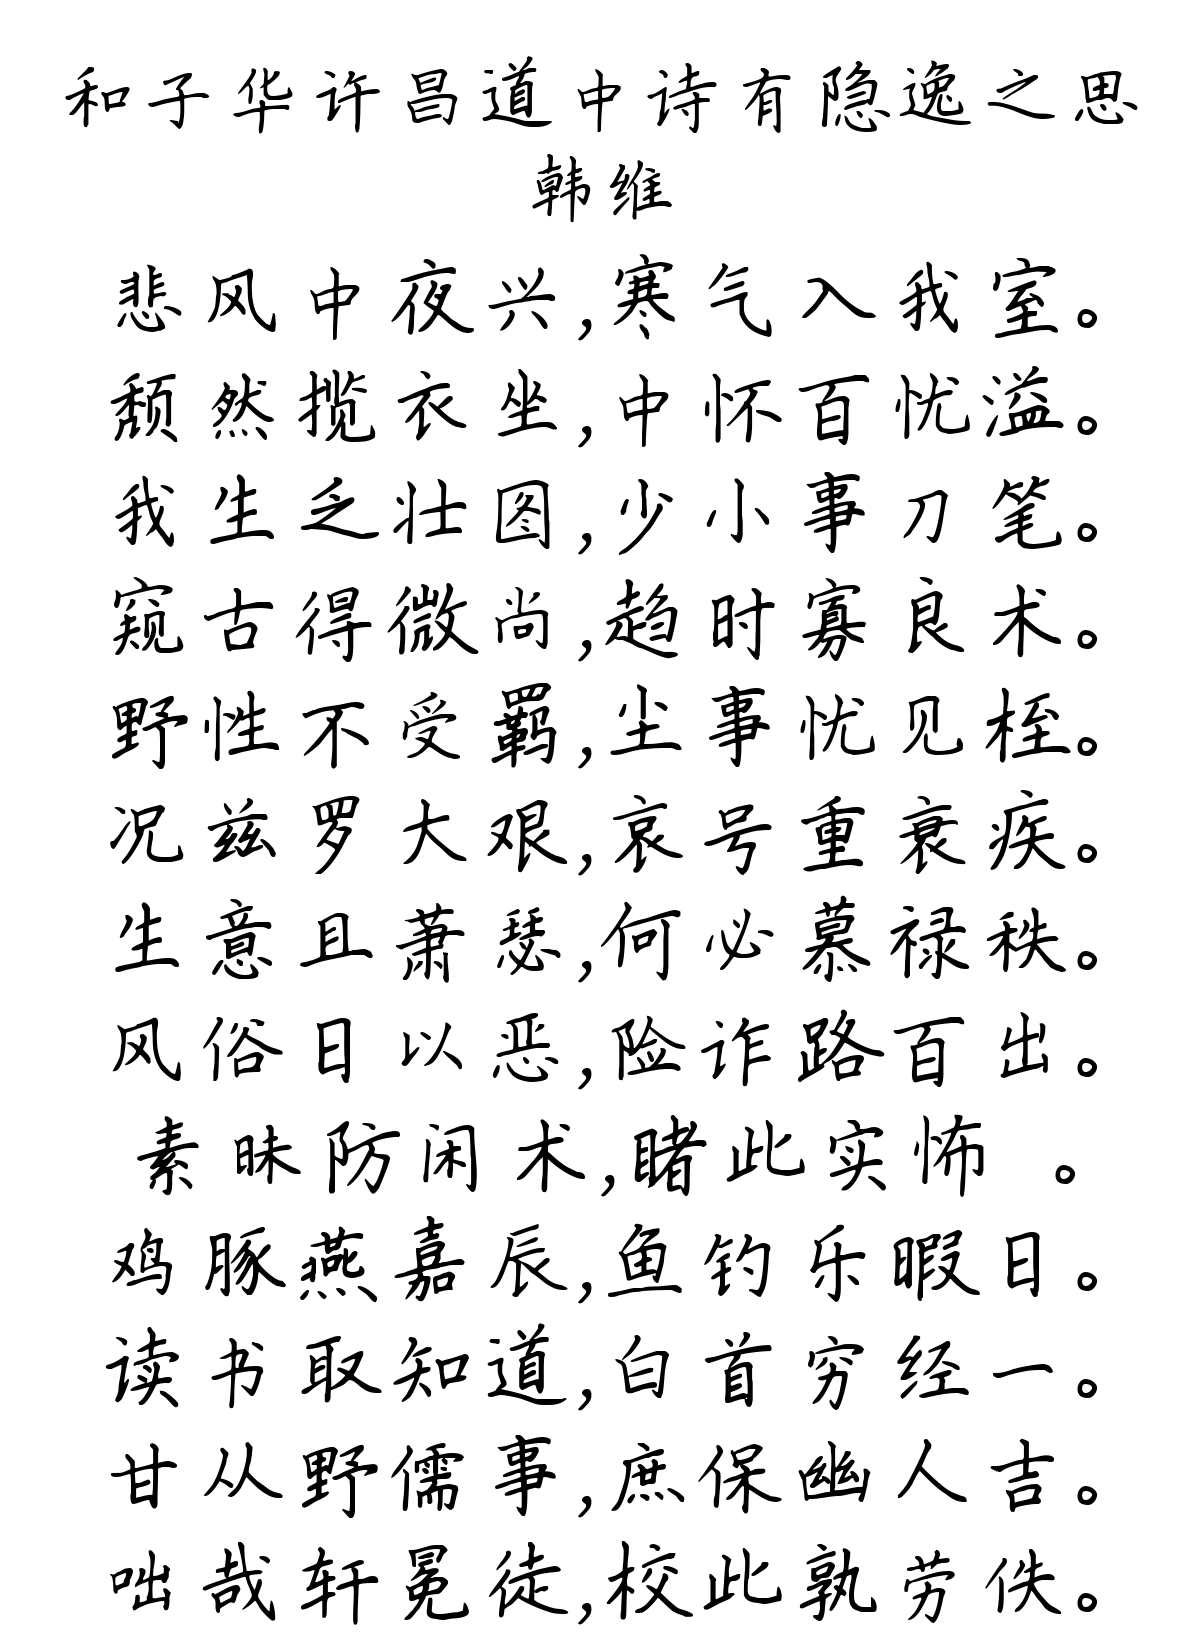 和子华许昌道中诗有隐逸之思
韩维
悲风中夜兴,寒气入我室。
颓然揽衣坐,中怀百忧溢。
我生乏壮图,少小事刀笔。
窥古得微尚,趋时寡良术。
野性不受羁,尘事忧见桎。
况兹罗大艰,哀号重衰疾。
生意且萧瑟,何必慕禄秩。
风俗日以恶,险诈路百出。
素昧防闲术,睹此实怖 。
鸡豚燕嘉辰,鱼钓乐暇日。
读书取知道,白首穷经一。
甘从野儒事,庶保幽人吉。
咄哉轩冕徒,校此孰劳佚。